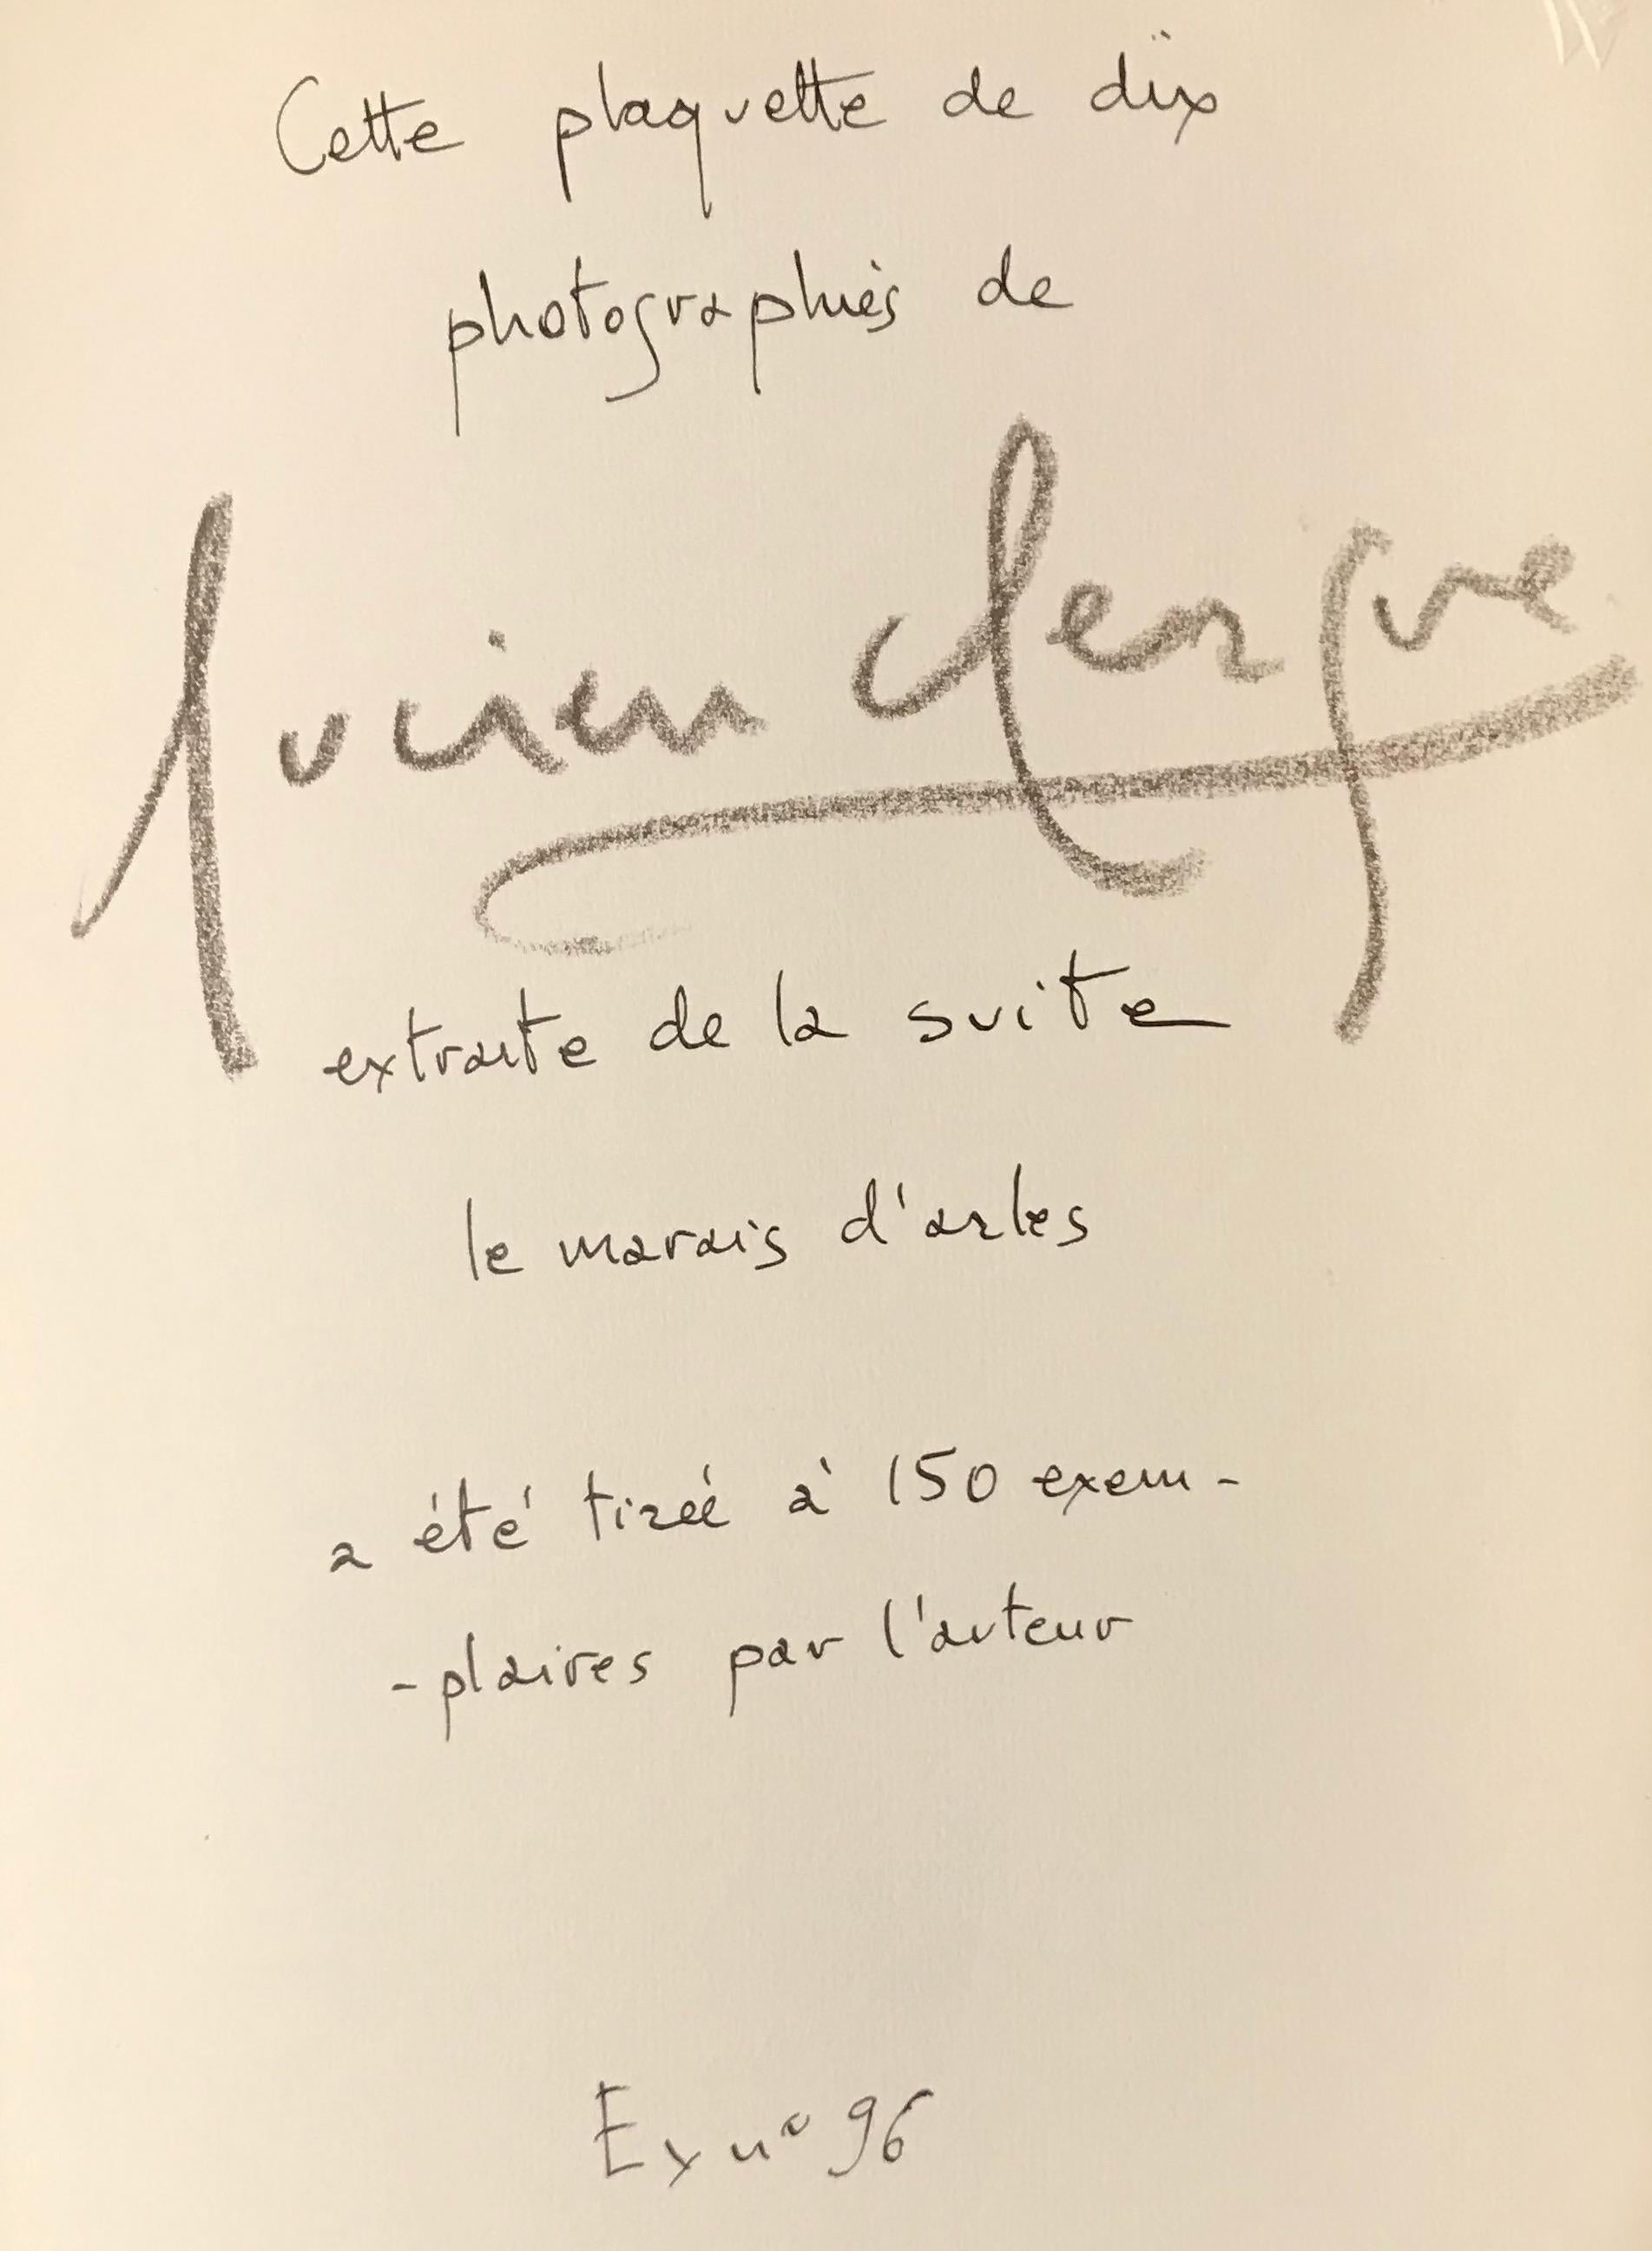 Cette plaquette de dix
photographies de
lucien clergue
extraite de la suite
le marais d'arles
a été tirée à 150 exem-
-plaires par l'auteur
Ex n° 96